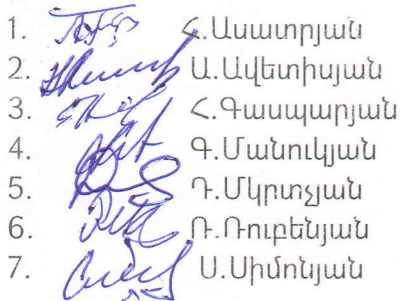 1. Հ.Ասատրյան
2. Ա.Ավետիսյան
3. Հ.Գասպարյան
4. Գ.Մանուկյան
5. Դ.Մկրտչյան
6. Ռ.Ռուբենյան
7. Ս.Սիմոնյան